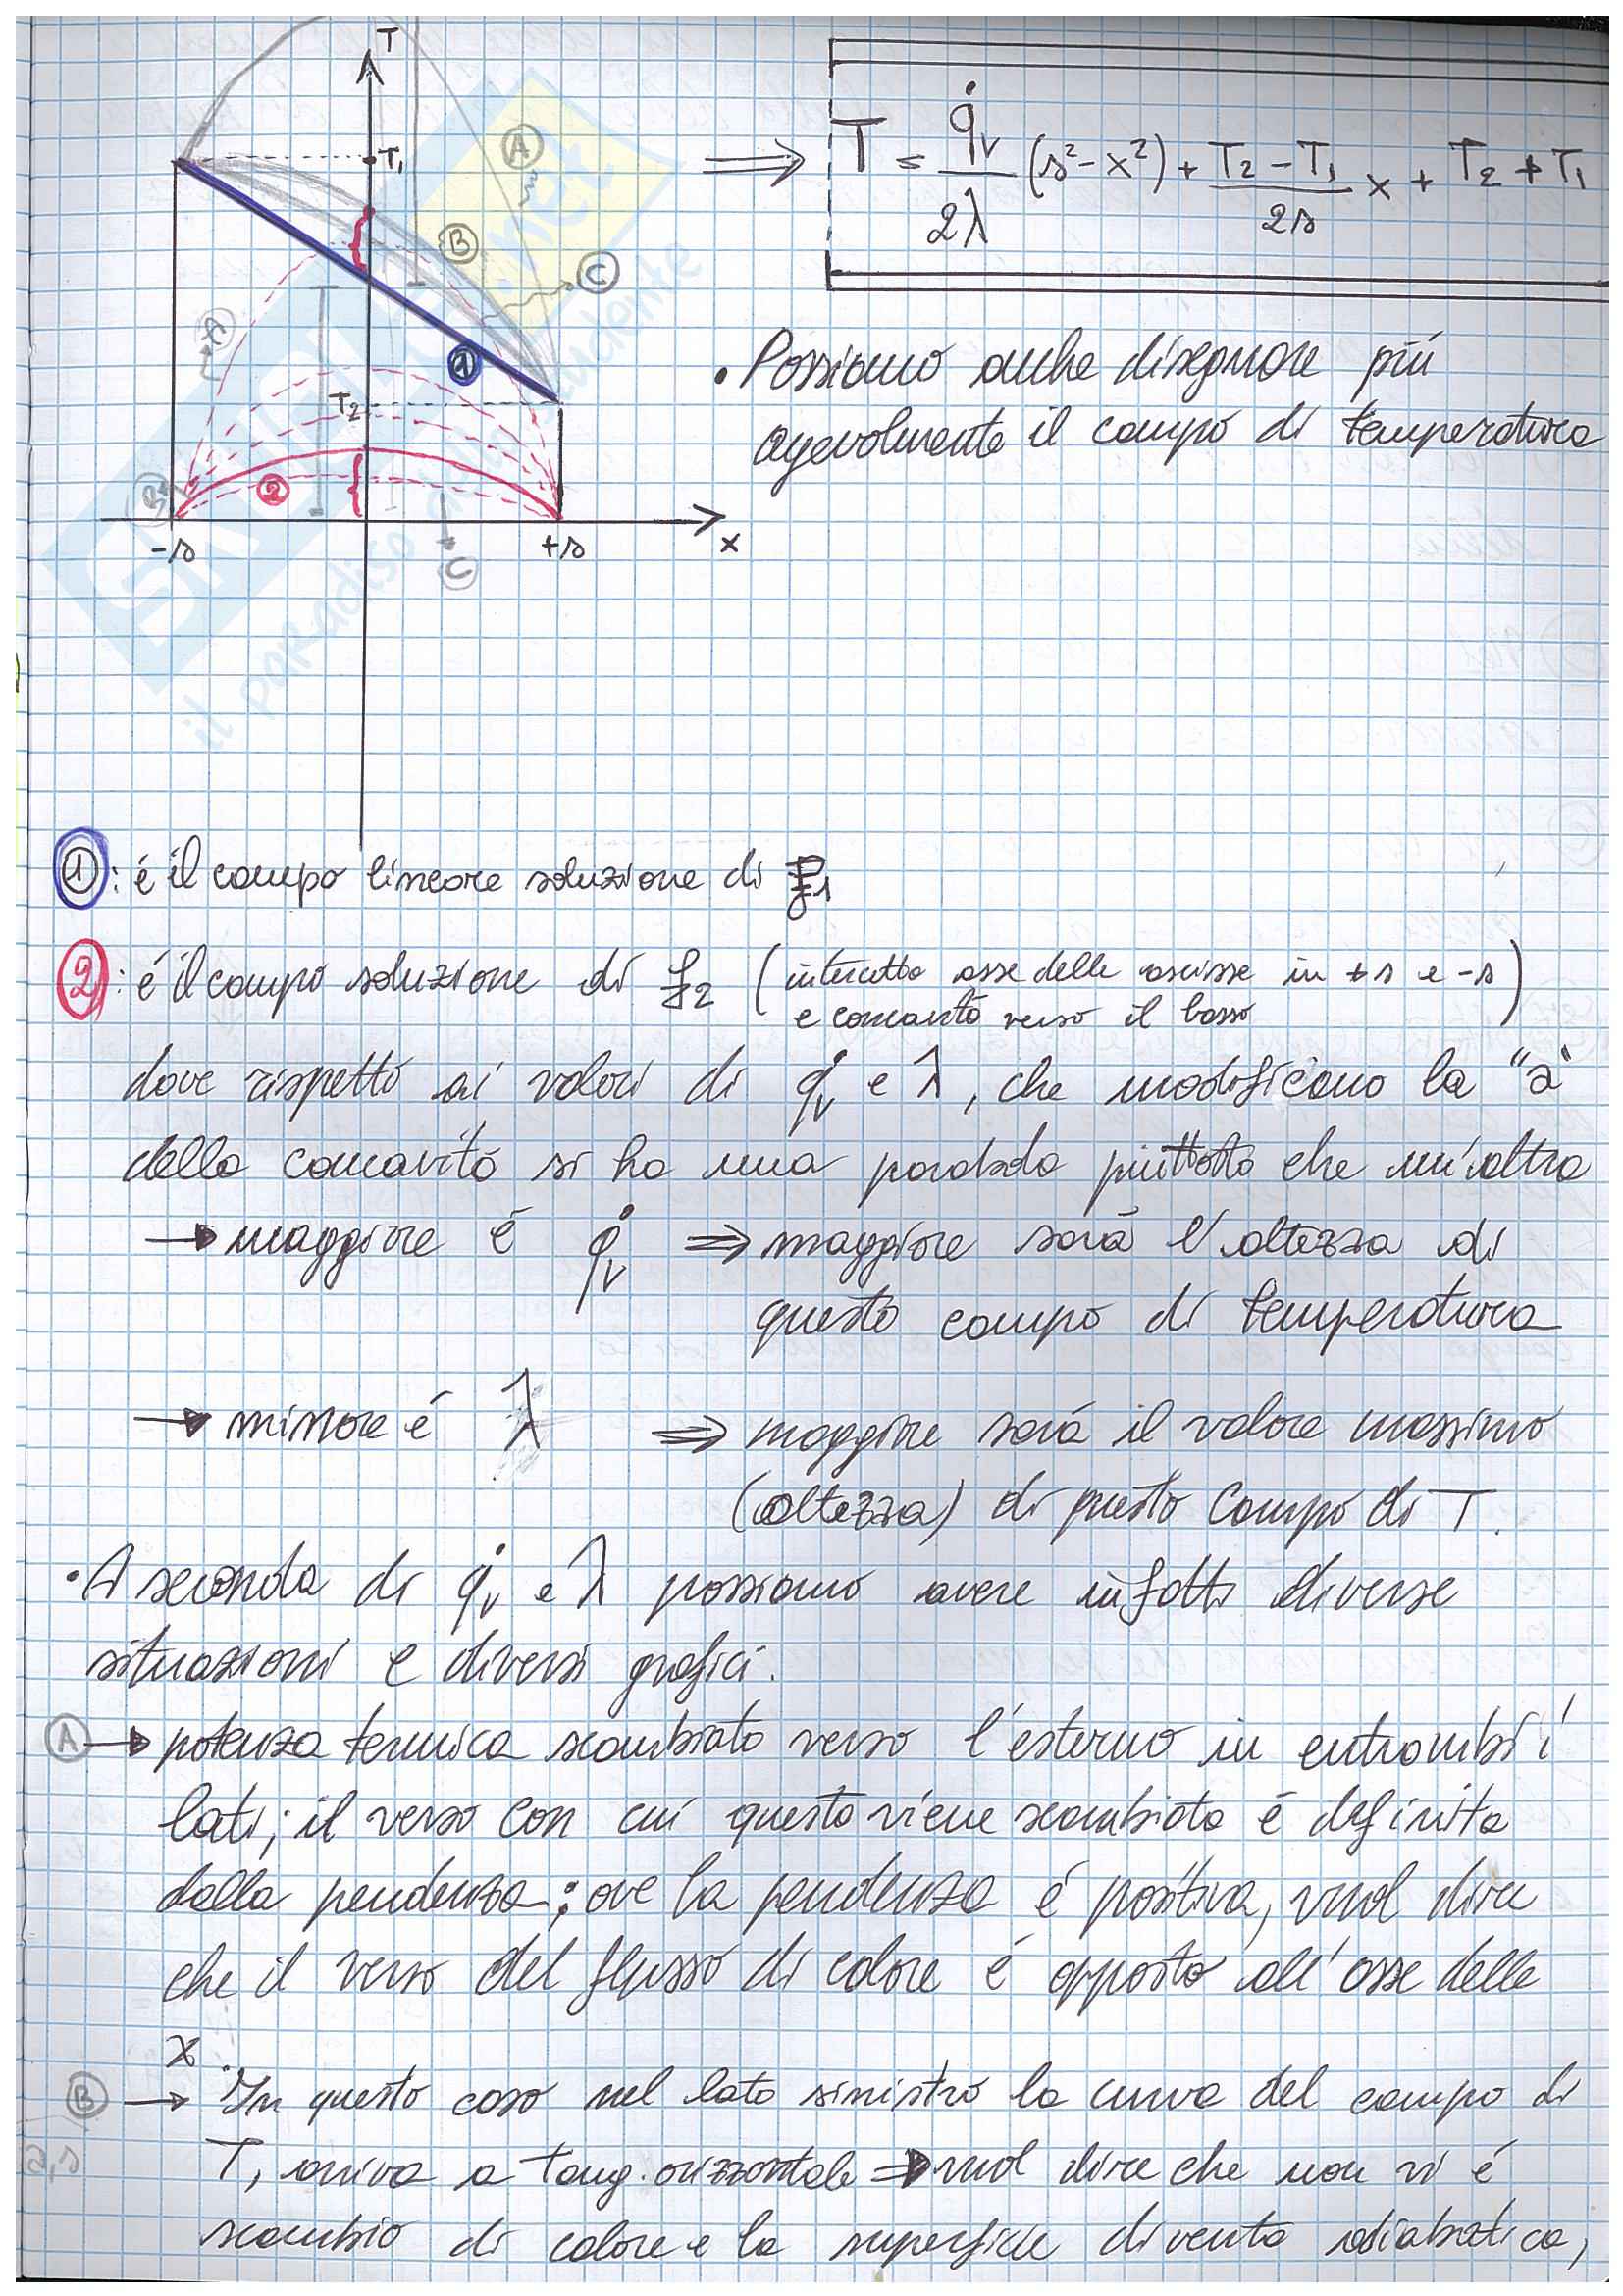 T
T₁
A
B
C
A
1
T₂
B
2
-s
+s
x
C
SKUOLA.net
il paradiso dello studente
⇒ T = q̇ᵥ/2λ (s²-x²) + T₂-T₁/2s x + T₂+T₁
• Possiamo anche disegnare più
agevolmente il campo di temperatura
①: é il campo lineare soluzione di f₁
②: é il campo soluzione di f₂ (intercetta asse delle ascisse in +s e -s)
e concavità verso il basso
dove rispetto ai valori di q̇ᵥ e λ, che modificano la "a"
della concavità si ha una parabola piuttosto che un'altra
→ maggiore é q̇ᵥ ⇒ maggiore sará l'altezza di
questo campo di temperatura
→ minore é λ ⇒ maggiore sará il valore massimo
(altezza) di questo campo di T.
• A seconda di q̇ᵥ e λ possiamo avere infatti diverse
situazioni e diversi grafici.
Ⓐ → potenza termica scambiata verso l'esterno in entrambi i
lati; il verso con cui questa viene scambiata é definita
dalla pendenza; ove la pendenza é positiva, vuol dire
che il verso del flusso di calore é opposto all'asse delle
x.
Ⓑ → In questo caso nel lato sinistro la curva del campo di
T, arriva a tang. orizzontale ⇒ vuol dire che non vi é
scambio di calore e la superficie diventa adiabatica,